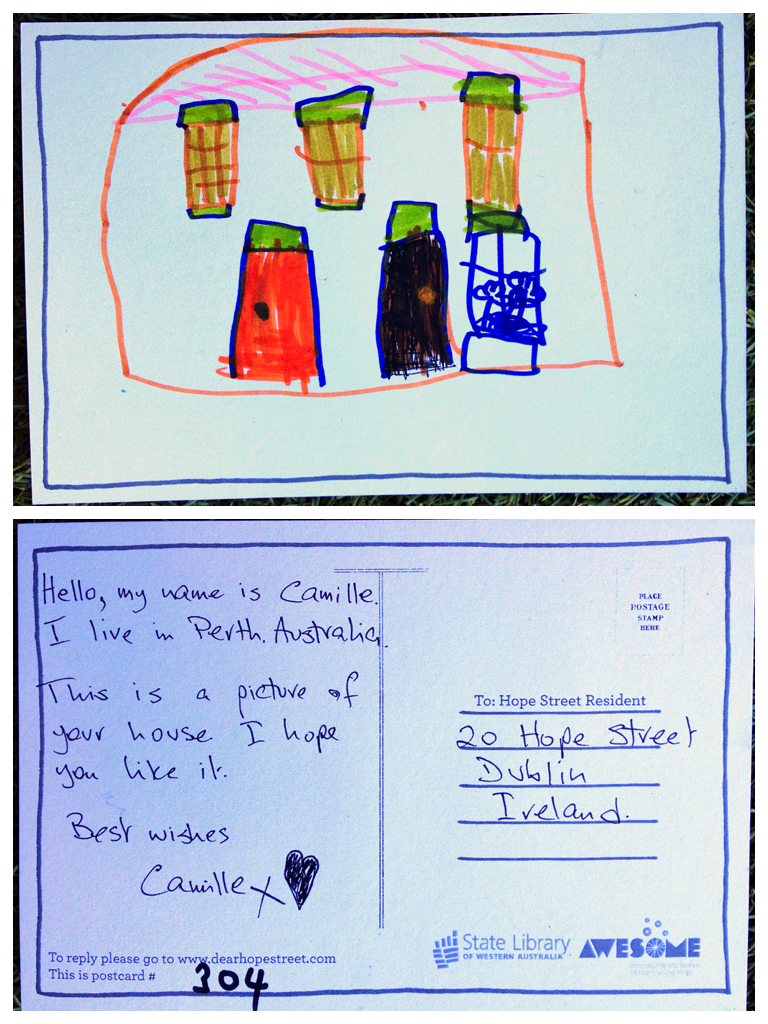 Hello, my name is Camille.
I live in Perth. Australia.
This is a picture of
your house. I hope
you like it.
Best wishes
Camille x
To reply please go to www.dearhopestreet.com
This is postcard # 304
PLACE
POSTAGE
STAMP
HERE
To: Hope Street Resident
20 Hope Street
Dublin
Ireland.
State Library
OF WESTERN AUSTRALIA
AWESOME